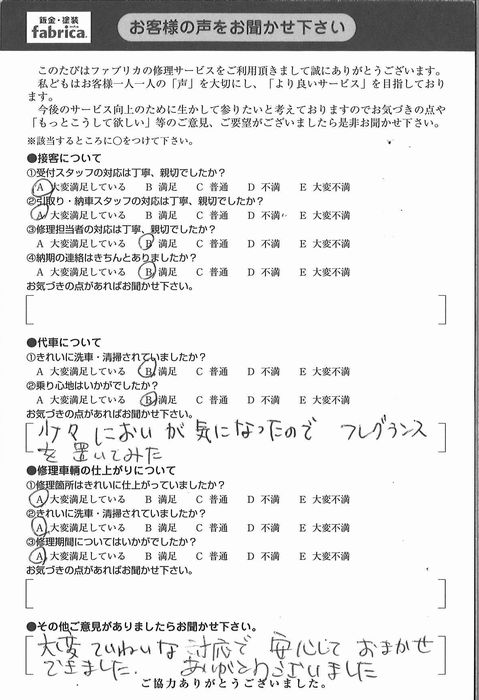 鈑金・塗装
fabrica.
お客様の声をお聞かせ下さい
このたびはファブリカの修理サービスをご利用頂きまして誠にありがとうございます。
私どもはお客様一人一人の「声」を大切にし、「より良いサービス」を目指しており
ます。
今後のサービス向上のために生かして参りたいと考えておりますのでお気づきの点や
「もっとこうして欲しい」等のご意見、ご要望がございましたら是非お聞かせ下さい。
※該当するところに○をつけて下さい。
●接客について
①受付スタッフの対応は丁寧、親切でしたか?
A 大変満足している B 満足 C 普通 D 不満 E 大変不満
②引取り・納車スタッフの対応は丁寧、親切でしたか?
A 大変満足している B 満足 C 普通 D 不満 E 大変不満
③修理担当者の対応は丁寧、親切でしたか?
A 大変満足している B 満足 C 普通 D 不満 E 大変不満
④納期の連絡はきちんとありましたか?
A 大変満足している B 満足 C 普通 D 不満 E 大変不満
お気づきの点があればお聞かせ下さい。
●代車について
①きれいに洗車・清掃されていましたか?
A 大変満足している B 満足 C 普通 D 不満 E 大変不満
②乗り心地はいかがでしたか?
A 大変満足している B 満足 C 普通 D 不満 E 大変不満
お気づきの点があればお聞かせ下さい。
少々 においが気になったので フレグランス
を置いてみた
●修理車輌の仕上がりについて
①修理箇所はきれいに仕上がっていましたか?
A 大変満足している B 満足 C 普通 D 不満 E 大変不満
②きれいに洗車・清掃されていましたか?
A 大変満足している B 満足 C 普通 D 不満 E 大変不満
③修理期間についてはいかがでしたか?
A 大変満足している B 満足 C 普通 D 不満 E 大変不満
お気づきの点があればお聞かせ下さい。
●その他ご意見がありましたらお聞かせ下さい。
大変ていねいな対応で 安心して おまかせ
できました。 ありがとうございました
ご協力ありがとうございました。